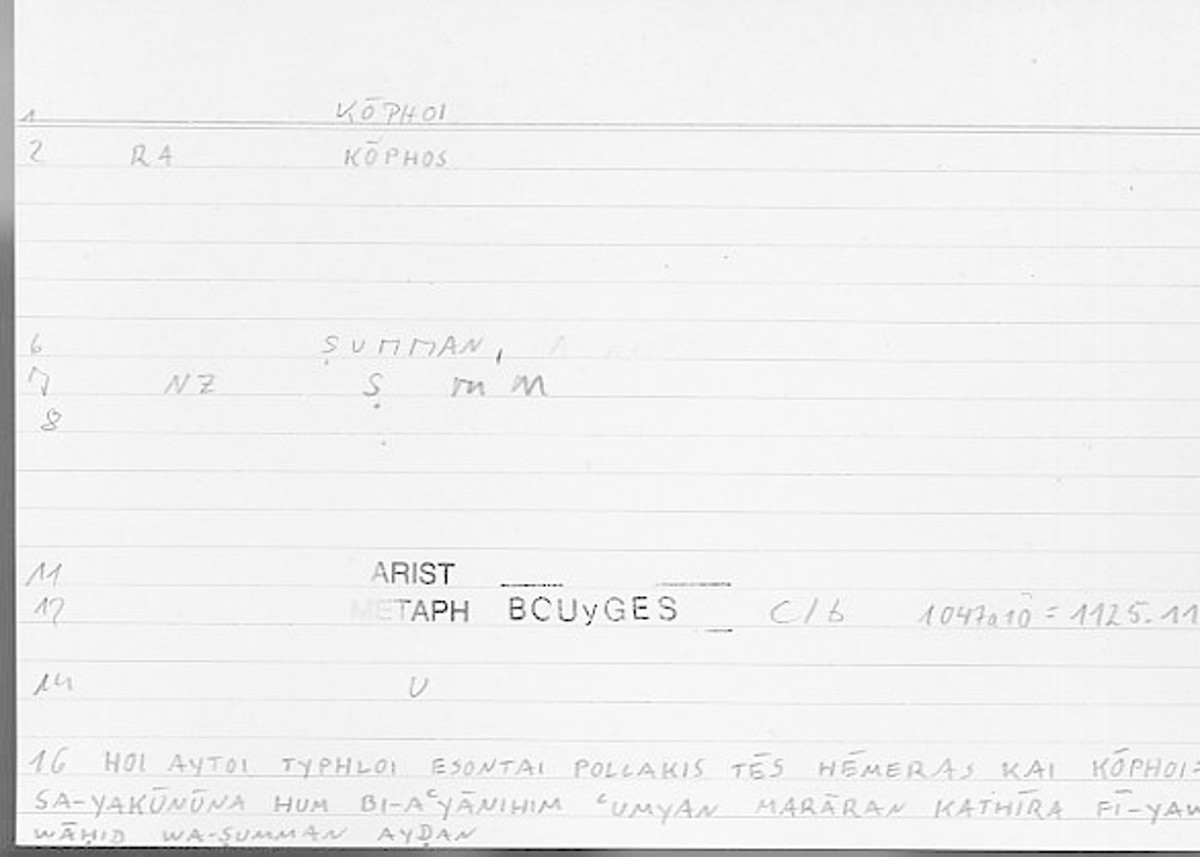 1 KŌPHOI
2 RA KŌPHOS
6 ṢUMMAN,
7 NZ Ṣ m m
8
11 ARIST
12 METAPH BCUyGES C/b 1047a10 = 1125.11
14 U
16 HOI AYTOI TYPHLOI ESONTAI POLLAKIS TĒS HĒMERAS KAI KŌPHOI=
SA-YAKŪNŪNA HUM BI-AʿYĀNIHIM ʿUMYAN MARĀRAN KATHĪRA FĪ-YAW
WĀḤID WA-ṢUMMAN AYḌAN